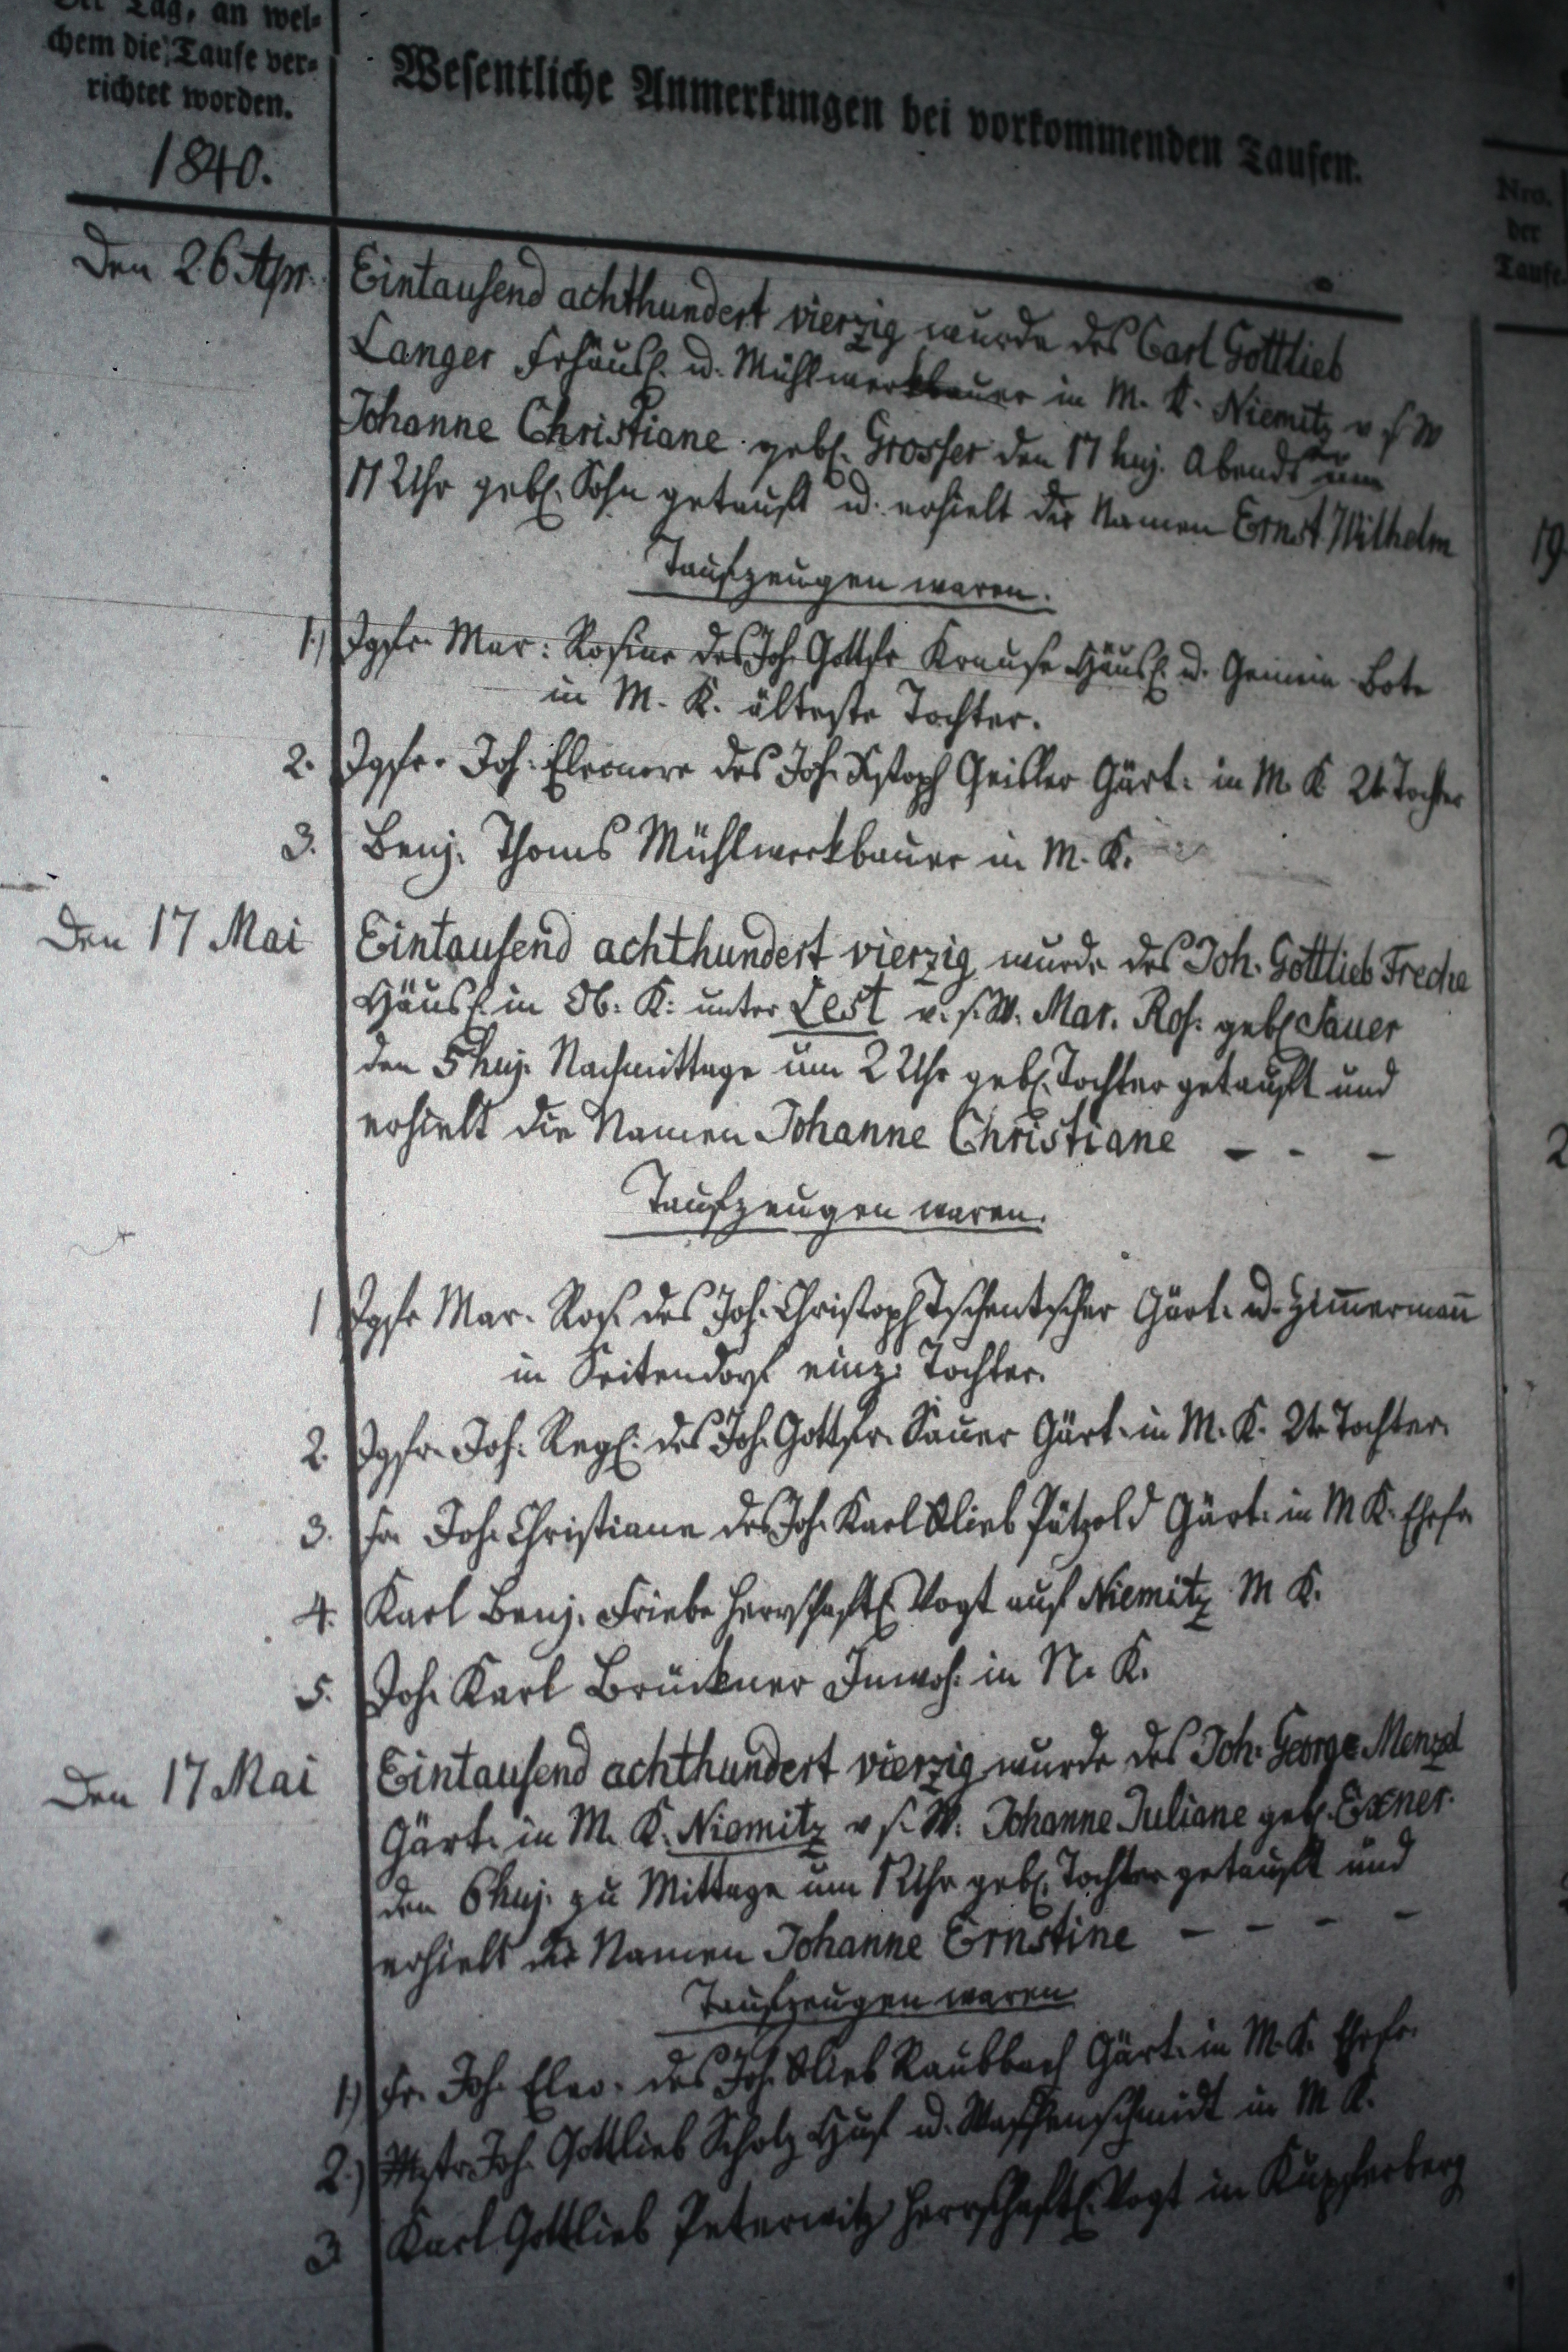 Der Tag, an wel-
chem die Taufe ver-
richtet worden.
1840.
Wesentliche Anmerkungen bei vorkommenden Taufen.
Nro.
der
Taufe
Den 26 Apr.
Eintausend achthundert vierzig wurde des Carl Gottlieb
Langer Frhäusl. u. Mühlwerkbauer in M. K. Niemitz v s W
Johanne Christiane gebl. Grosser den 17 huj. Abends um
11 Uhr gebl. Sohn getauft u. erhielt die Namen Ernst Wilhelm
19
Taufzeugen waren.
1.) Jgfr. Mar: Rosine des Joh. Gottfr Krause Häusl. u. Gemein Bote
in M. K. älteste Tochter.
2. Jgfr. Joh: Eleonore des Joh. Xstoph Geisler Gärt: in M. K 2t Tochter
3. Benj. Thoms Mühlwerkbauer in M. K.
Den 17 Mai
Eintausend achthundert vierzig wurde des Joh. Gottlieb Freche
Häusl. in Ob. K: unter Lest v. s. W. Mar. Ros. gebl Sauer
den 5 huj. Nachmittage um 2 Uhr gebl. Tochter getauft und
erhielt die Namen Johanne Christiane - - -
2
Taufzeugen waren.
1 Jgfr Mar. Ros. des Joh. Christoph Tschentscher Gärt. u. Zim̄erman̄
in Seitendorf einz: Tochter.
2. Jgfr. Joh: Regl: des Joh. Gottfr. Sauer Gärt. in M. K. 2t Tochter.
3. Fr. Joh. Christiane des Joh. Karl Glieb Pätzold Gärt. in M K. Ehefr.
4. Karl Benj. Friebe herrschaftl Vogt auf Niemitz M K.
5. Joh. Karl Brückner Inwoh. in N. K.
Den 17 Mai
Eintausend achthundert vierzig wurde des Joh. George Menzel
Gärt. in M. K. Niemitz v s. W. Johanne Juliane gebl. Exner.
den 6 huj. zu Mittage um 12 Uhr gebl. Tochter getauft und
erhielt die Namen Johanne Ernstine - - - -
Taufzeugen waren
1.) Fr. Joh. Eleo. des Joh. Glieb Raubbach Gärt. in M. K. Ehefr.
2.) Mstr. Joh. Gottlieb Scholz Huf u. Waffenschmidt in M K.
3 Karl Gottlieb Peterwitz herrschaftl. Vogt in Kupferberg